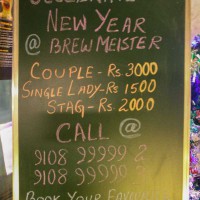 CELEBRATE
NEW YEAR
@ BREWMEISTER
COUPLE - Rs 3000
SINGLE LADY - Rs 1500
STAG - Rs 2000
CALL @
9108 99999 2
9108 99990 2
BOOK YOUR FAVOURI